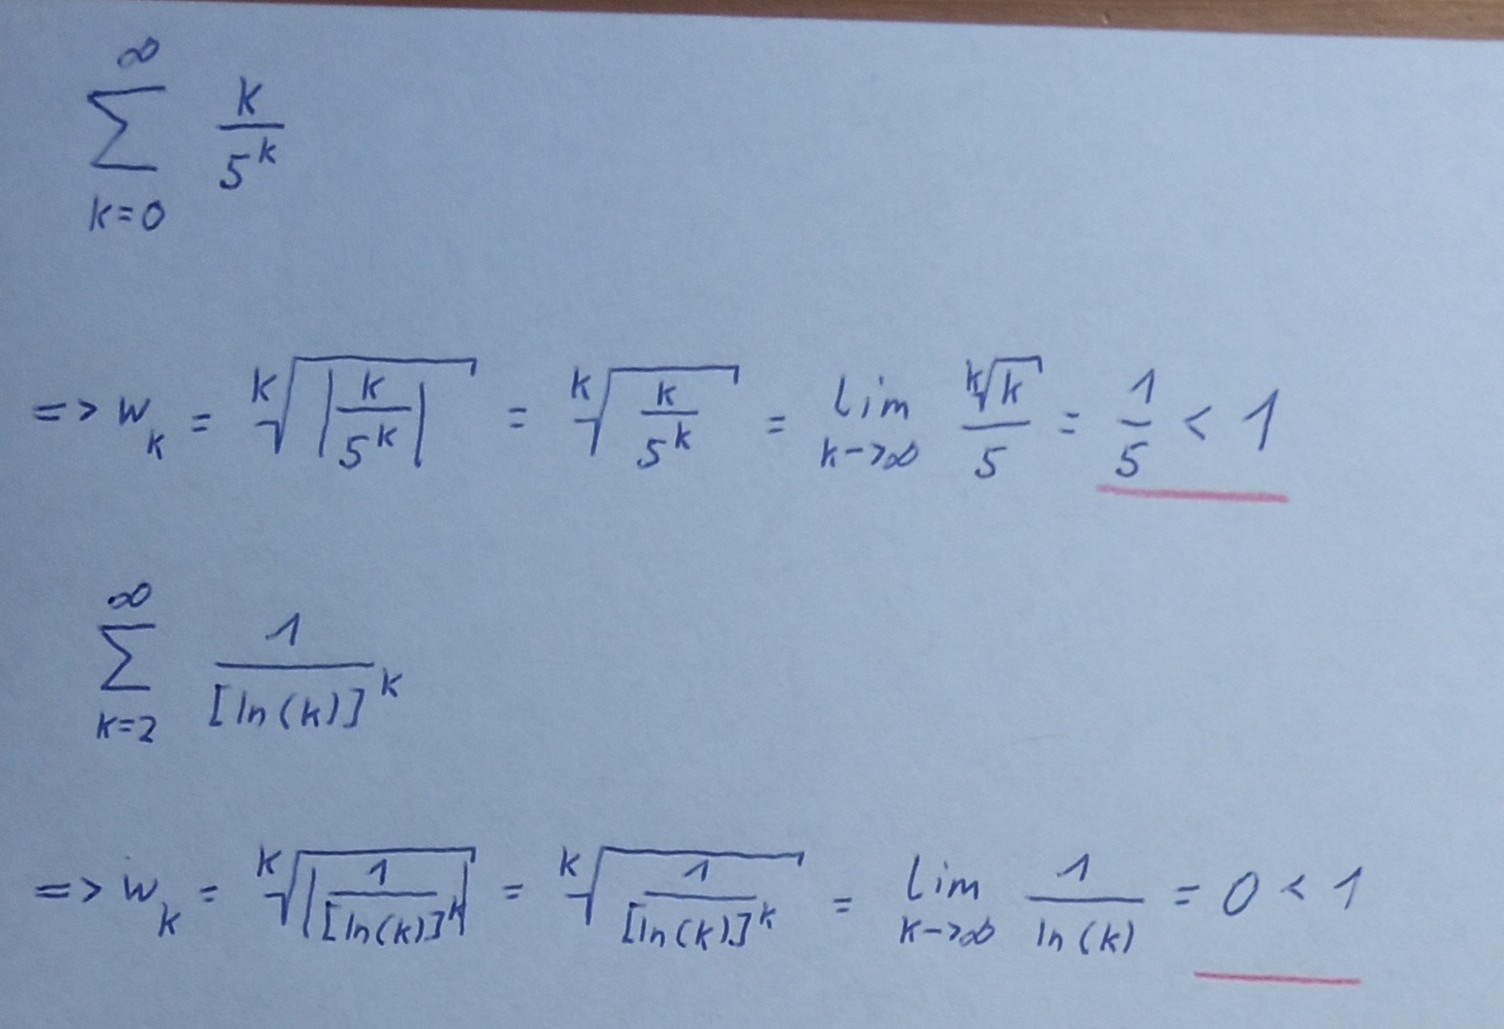 ∞
∑ k/5^k
k=0
=> w_k = ᵏ√|k/5^k| = ᵏ√(k/5^k) = lim_{k->∞} ᵏ√k/5 = 1/5 < 1
∞
∑ 1/[ln(k)]^k
k=2
=> w_k = ᵏ√|1/[ln(k)]^k| = ᵏ√(1/[ln(k)]^k) = lim_{k->∞} 1/ln(k) = 0 < 1